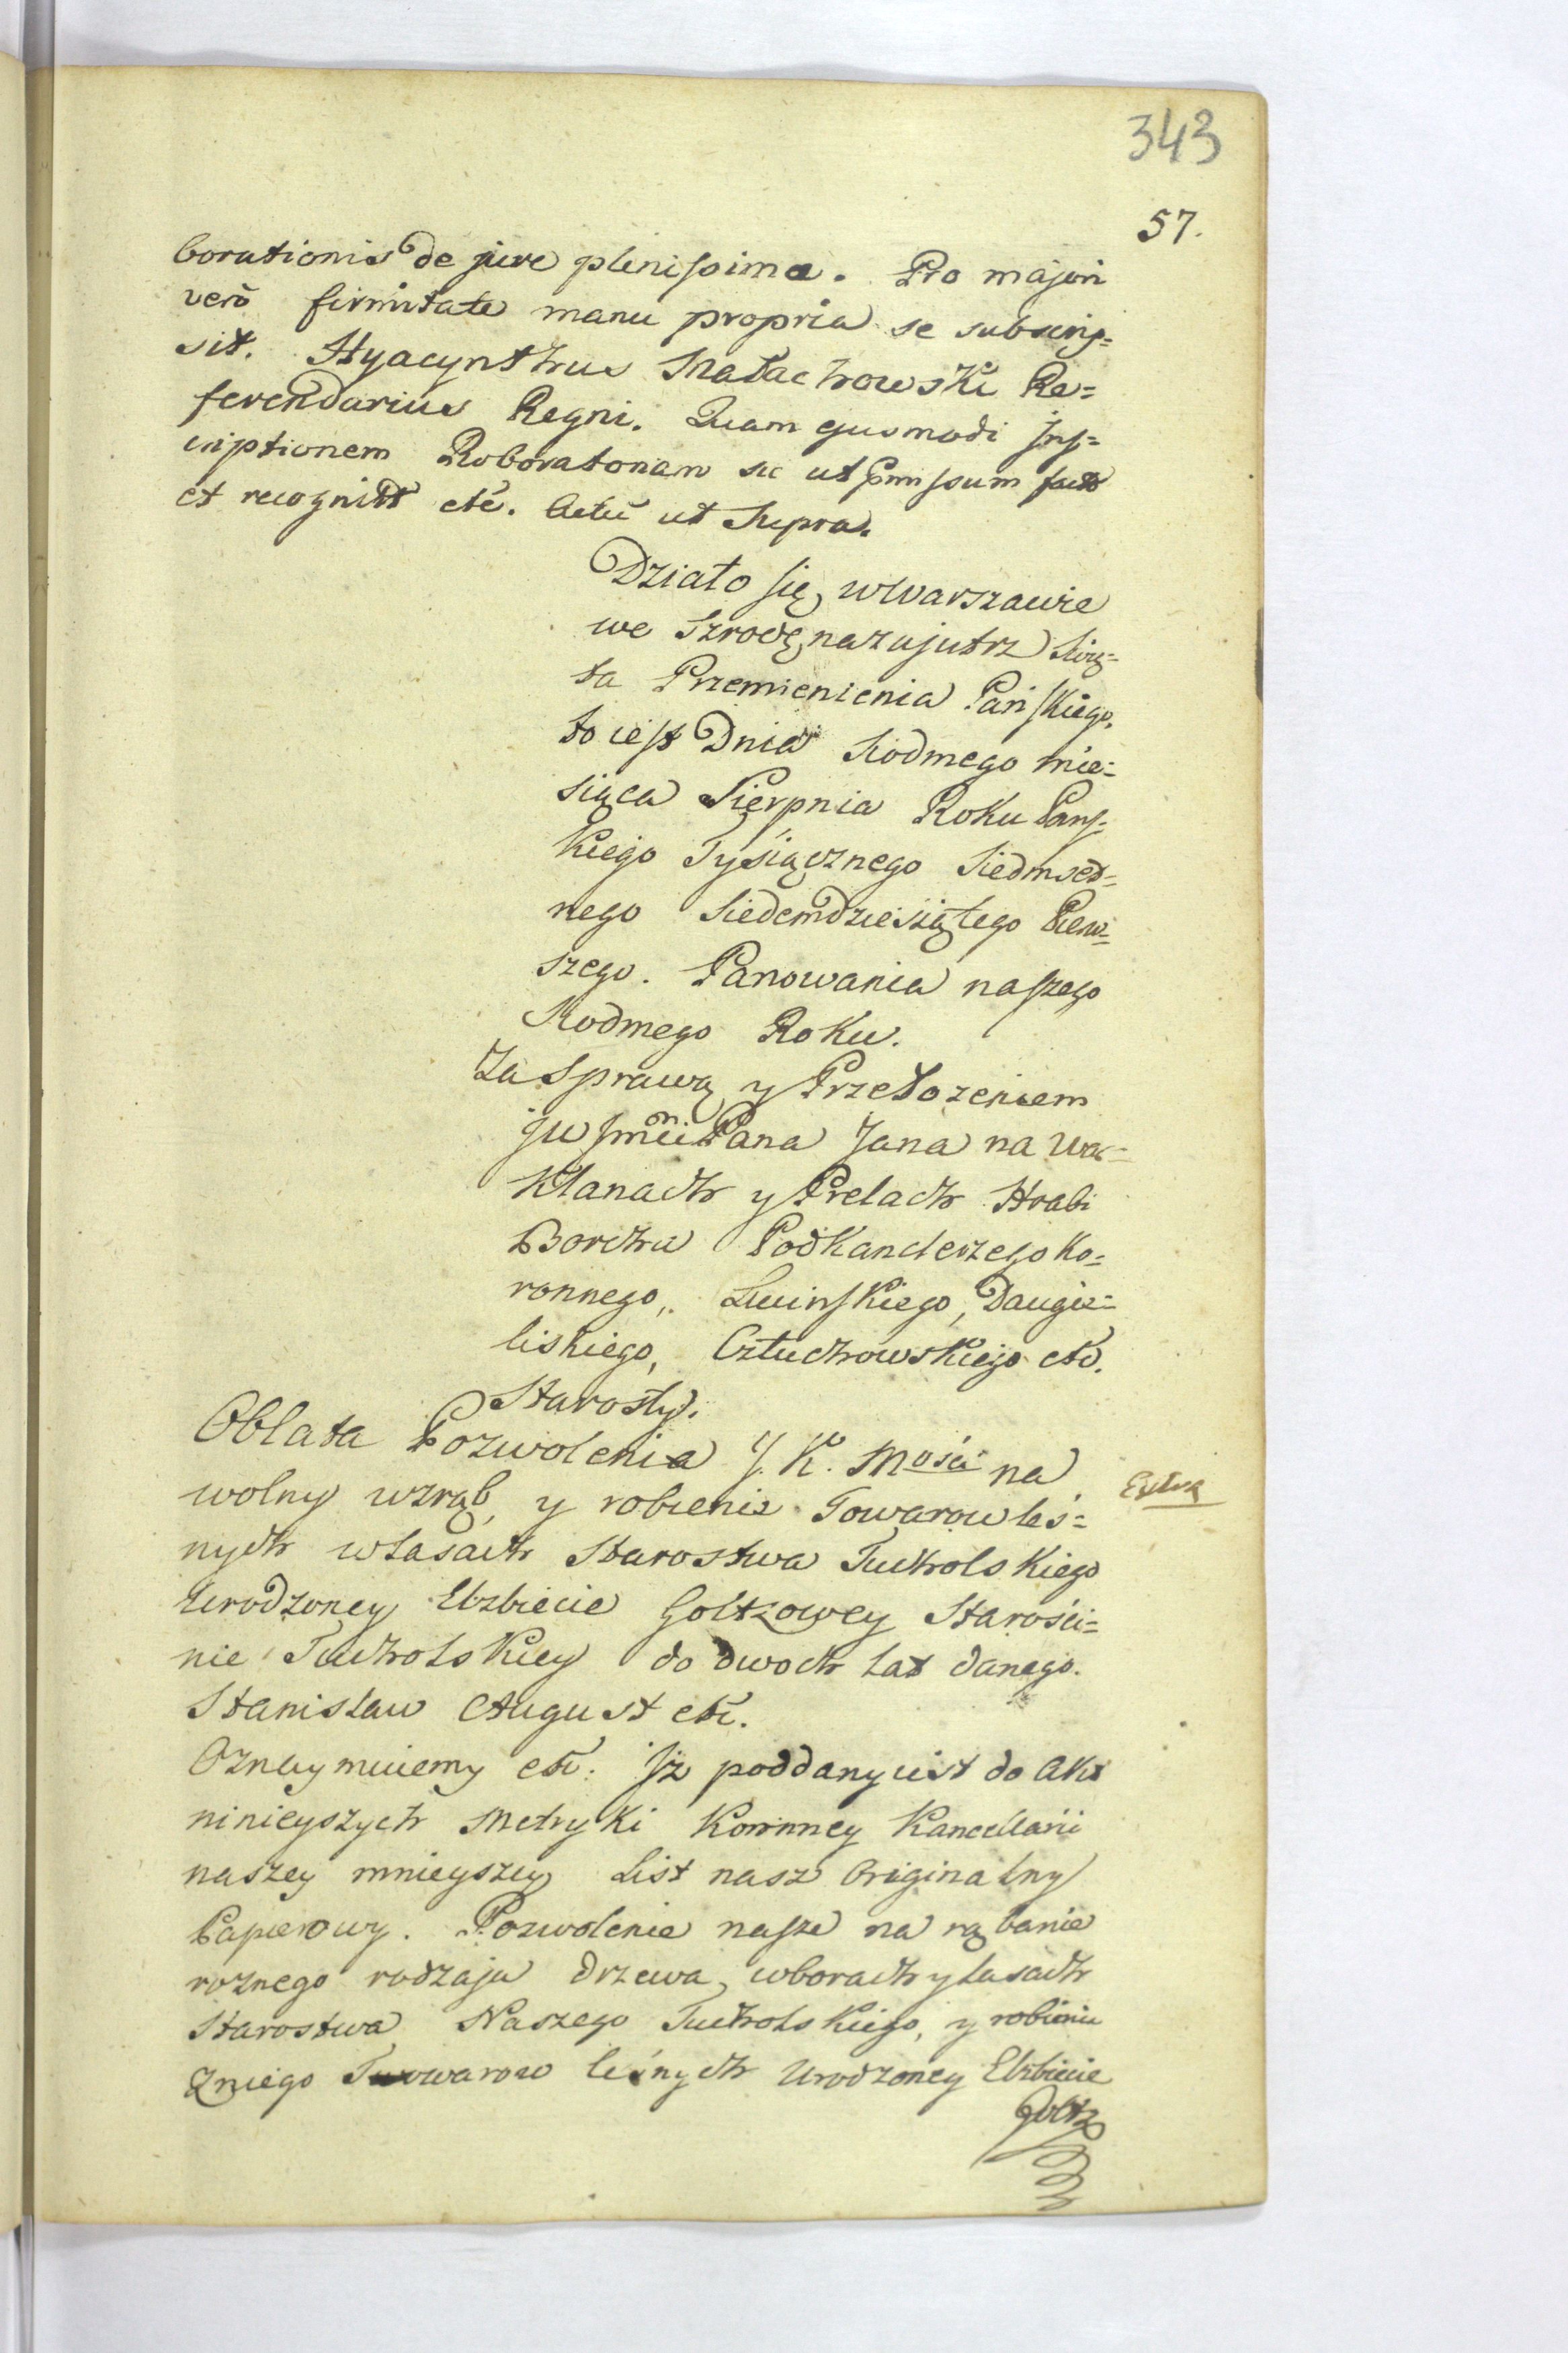 343
57.
borationis de jure plenissima. Pro majori
verò firmitate manu propria se subscrip=
sit. Hyacynthus Małachowski Re=
ferendarius Regni. Quam ejusmodi Ins=
criptionem Roboratoriam sic ut pmissum facto
et recognitt etc. Actũ ut Supra.
Działo się wWarszawie
we Szrodę nazajutrz Świę=
ta Przemienienia Pańskiego,
to iest Dnia Siodmego mie=
siąca Sierpnia Roku Pańs=
kiego Tysiącznego Siedmset=
nego Siedemdziesiątego Pierw=
szego. Panowania naszego
Siodmego Roku.
Za Sprawą y Przełozeniem
Jw Jmci Pana Jana na War=
klanach y Prelach Hrabi
Borcha Podkanclerzego Ko=
ronnego, Lucinskiego, Daugie=
liskiego, Człuchowskiego etc.
Starosty.
Oblata Pozwolenia J. K. Mości na
wolny wzrąb, y robienie Towarow leś=
nych wLasach Starostwa Tucholskiego
Urodzoney Elzbiecie Goltzowey Starości=
nie Tucholskiey do dwoch Lat danego.
Extra
Stanisław August etc.
Oznaymuiemy etc. Jż poddany iest do Akt
ninieyszych Metryki Koronney Kancellarii
naszey mnieyszey List nasz Originalny
Papierowy. Pozwolenie nasze na rąbanie
roznego rodzaju drzewa, wborach y Lasach
Starostwa Naszego Tucholskiego, y robienie
Zniego Towarow leśnych Urodzoney Elzbiecie
Goltz